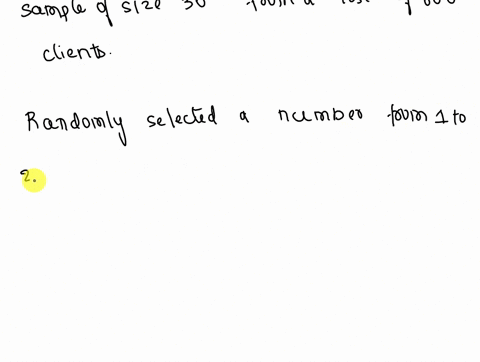 sample of size 30 from a list of
clients.
Randomly selected a number from 1 to
2.